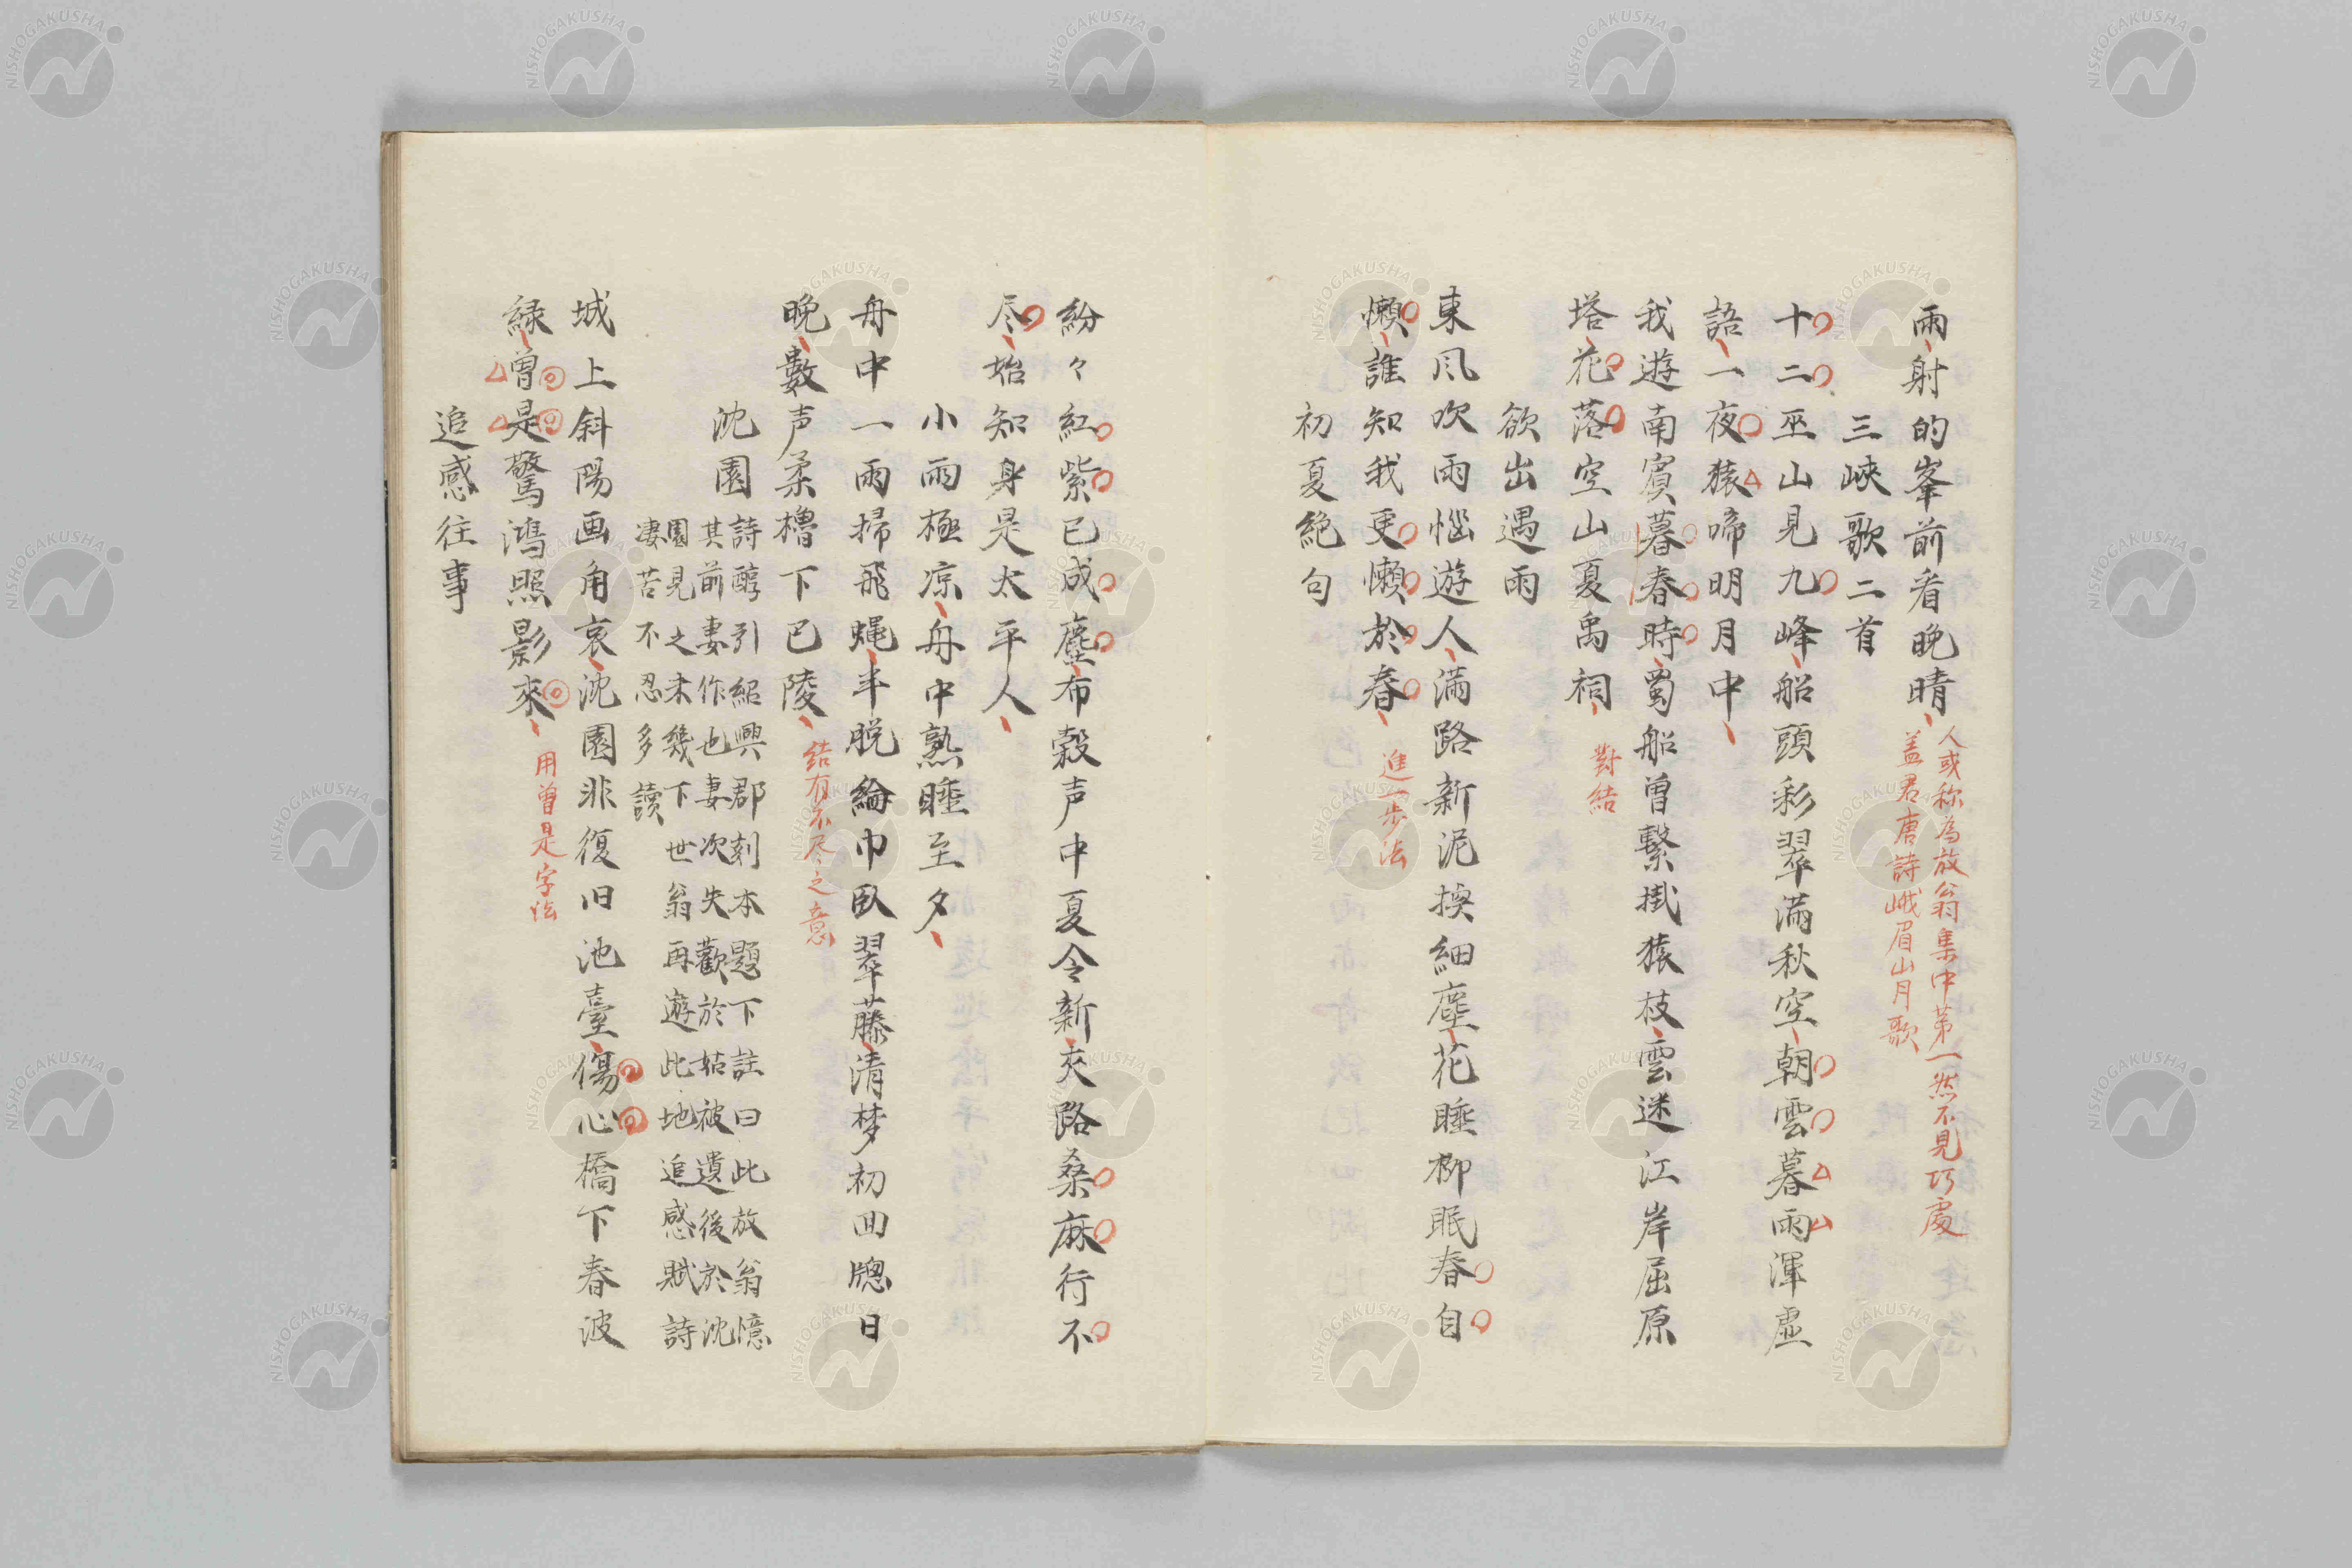 雨射的峯前看晩晴
人或称為放翁集中第一然不見巧處
盖君唐詩峨眉山月歌
三峽歌二首
十二巫山見九峰船頭彩翠滿秋空朝雲暮雨渾虛
語一夜猿啼明月中
我遊南賓暮春時蜀船曽繫掛猿枝雲迷江岸屈原
塔花落空山夏禹祠
對結
欲出遇雨
東風吹雨惱遊人滿路新泥換細塵花睡柳眠春自
懶誰知我更懶於春
進一步法
初夏絶句
紛々紅紫已成塵布穀声中夏令新夾路桑麻行不
尽始知身是太平人
小雨極凉舟中熟睡至夕
舟中一雨掃飛蠅半脱綸巾臥翠藤清梦初回牕日
晩數声柔櫓下巴陵
結有不尽之意
沈園
詩醇引紹興郡刻本題下註曰此放翁憶
其前妻作也妻次失歡於姑被遺後於沈
園見之未幾下世翁再遊此地追感賦詩
凄苦不忍多讀
城上斜陽画角哀沈園非復旧池臺傷心橋下春波
緑曽是驚鴻照影來
用曽是字法
追感往事
NISHOGAKUSHA